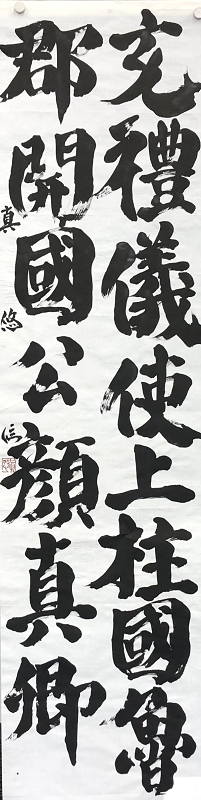 充禮儀使上柱國魯
郡開國公顔真卿
真悠